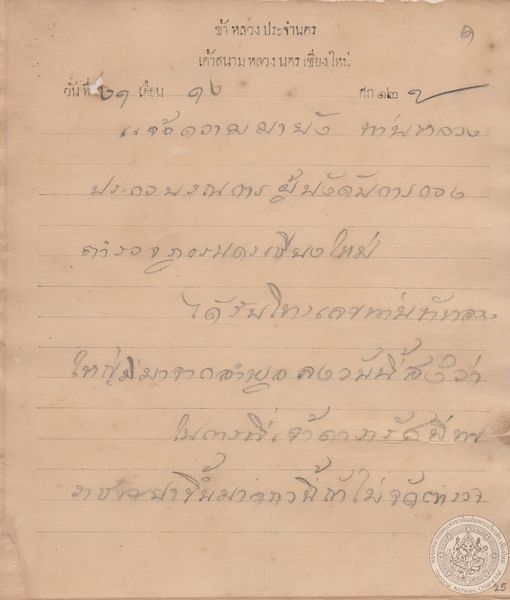 ๑
ข้าหลวงประจำนคร
เค้าสนามหลวงนครเชียงใหม่
วันที่ ๒๑ เดือน ๑๒ ศก ๑๒๒
แจ้งความมายัง ท่านหลวง
ประกอบรณการ ผู้บังคับการกอง
ตำรวจภูธรนครเชียงใหม่
ได้รับโทรเลขท่านข้าหลวง
ใหญ่มีมาจากลำพูน ลงวันนี้สั่งว่า
ในการที่เจ้าดารารัศมีพระ
ราชชายาขึ้นมาคราวนี้ถ้าไม่จัดตำรวจ
25